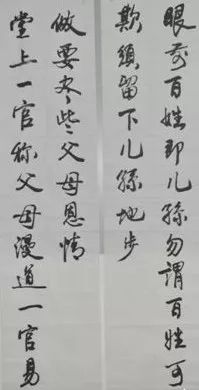 眼前百姓即儿孙勿谓百姓可
欺须留下儿孙地步
堂上一官称父母漫道一官易
做要尽些父母恩情